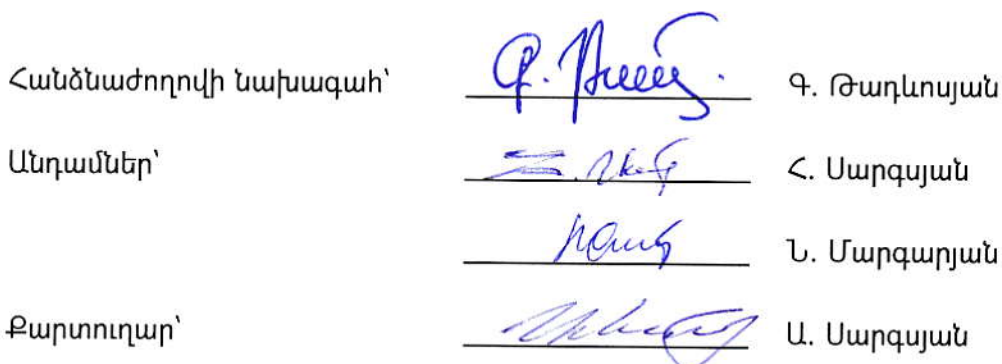 Հանձնաժողովի նախագահ՝ Գ. Թադևոսյան
Անդամներ՝ Հ. Սարգսյան
Ն. Մարգարյան
Քարտուղար՝ Ա. Սարգսյան